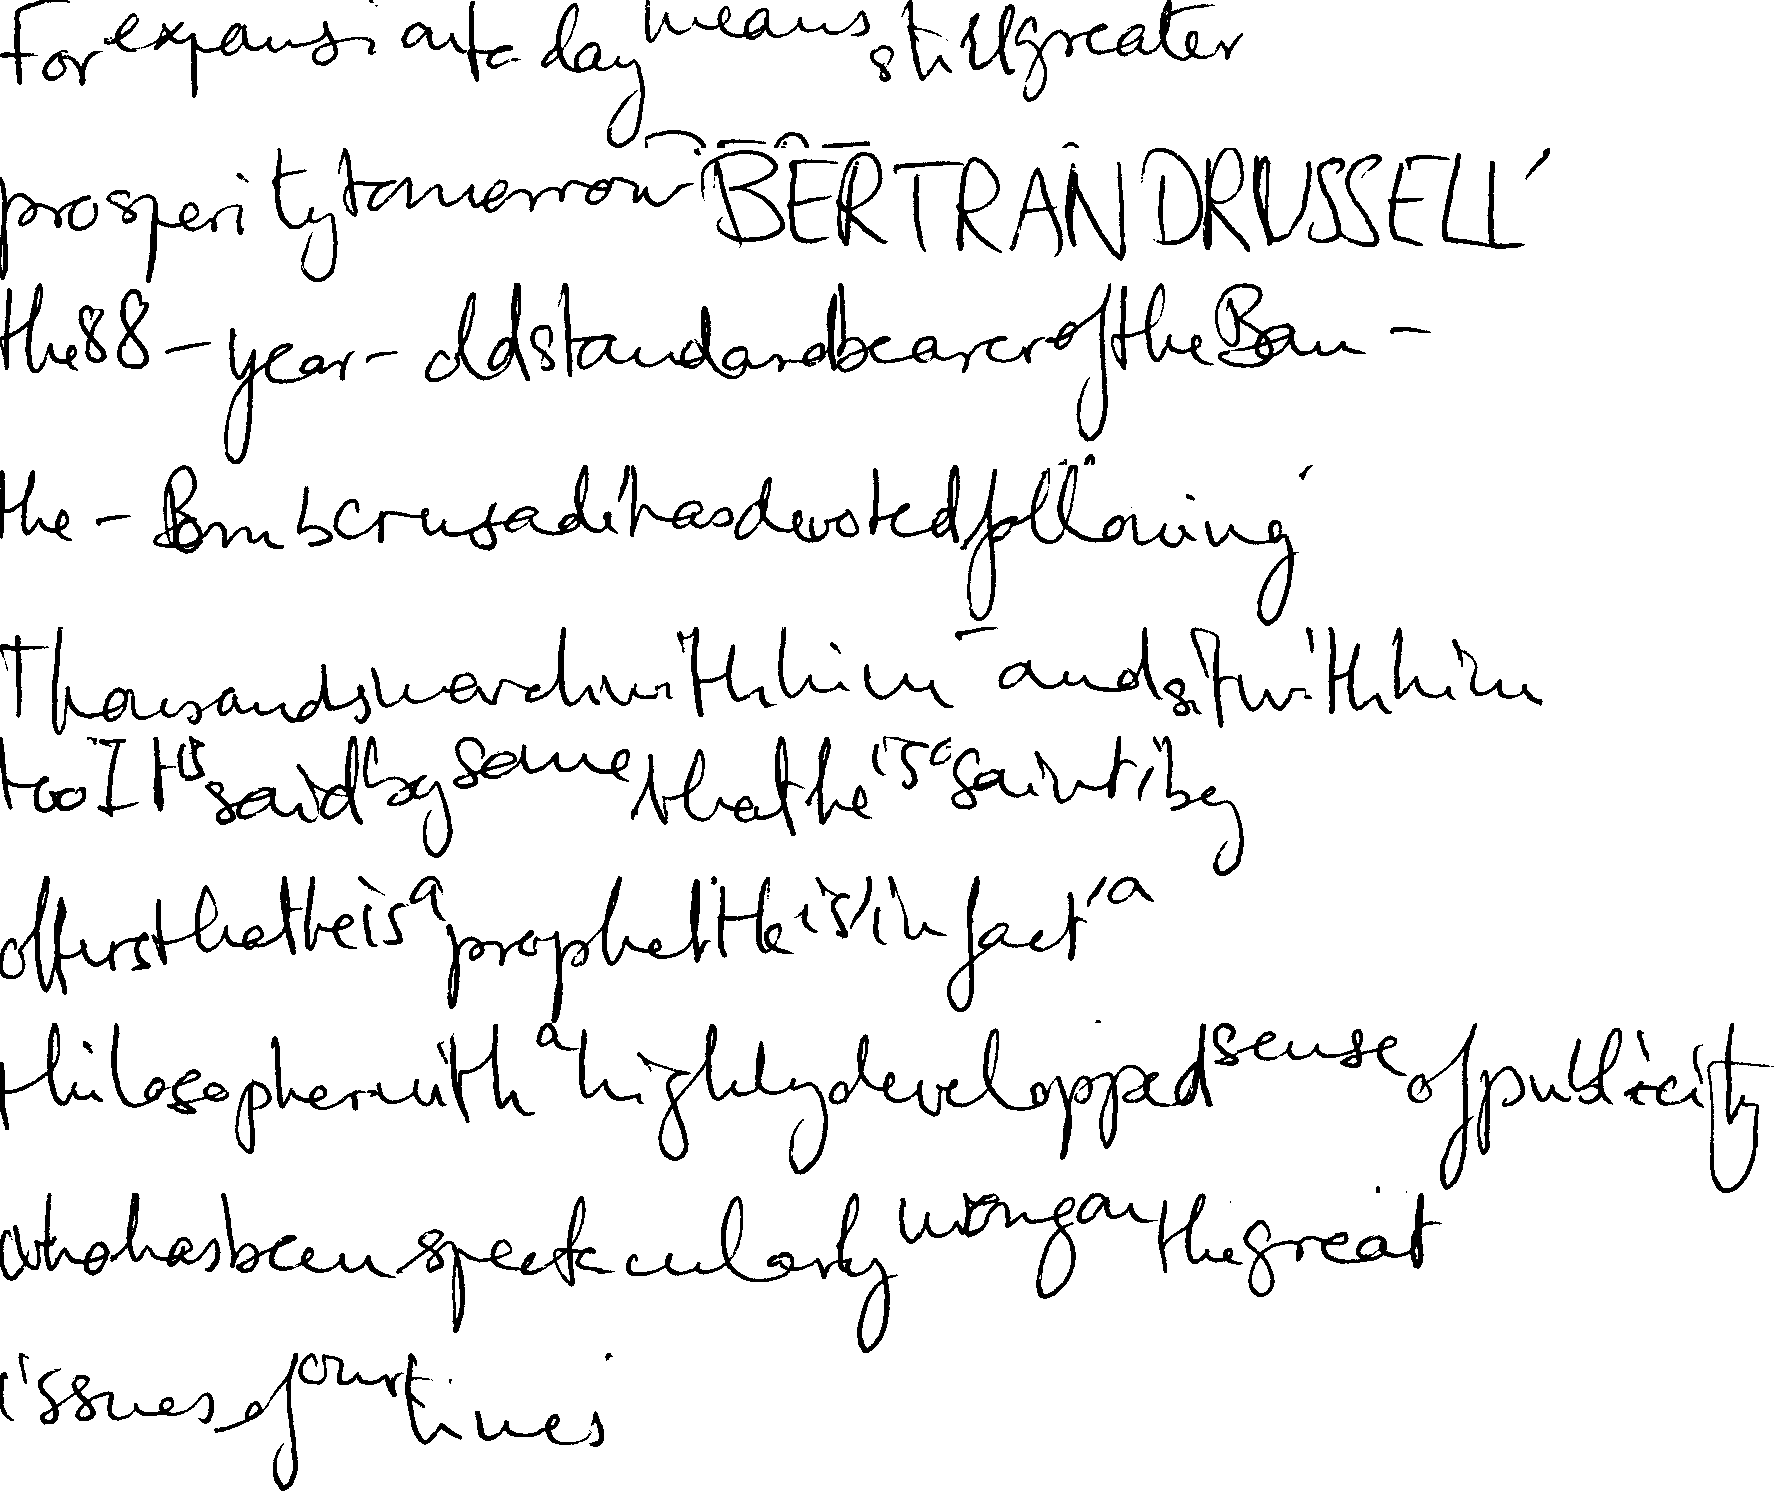 For expansion today means still greater
prosperity tomorrow BERTRAND RUSSELL,
the 88-year-old standard bearer of the Ban-
the-Bomb crusade, has devoted following.
Thousands march with him - and sit with him
too. It is said by some that he is a saint, by
others that he is a prophet. He is, in fact, a
philosopher with a highly developped sense of publicity
who has been spectacularly wrong on the great
issues of our times.